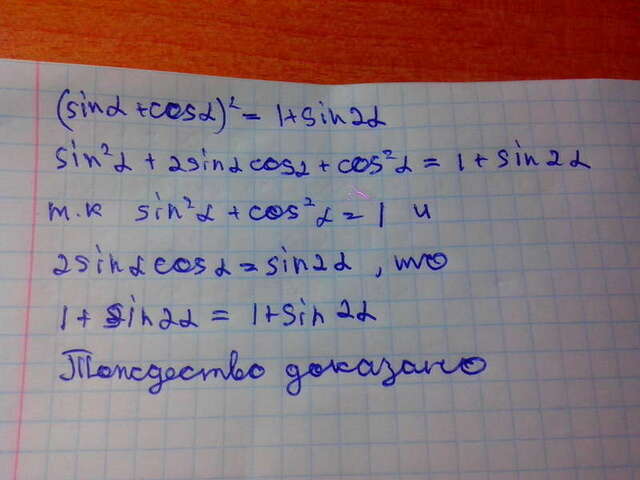 (sinα + cosα)² = 1 + sin2α
sin²α + 2sinα cosα + cos²α = 1 + sin2α
т.к sin²α + cos²α = 1 и
2sinα cosα = sin2α, то
1 + sin2α = 1 + sin2α
Тождество доказано